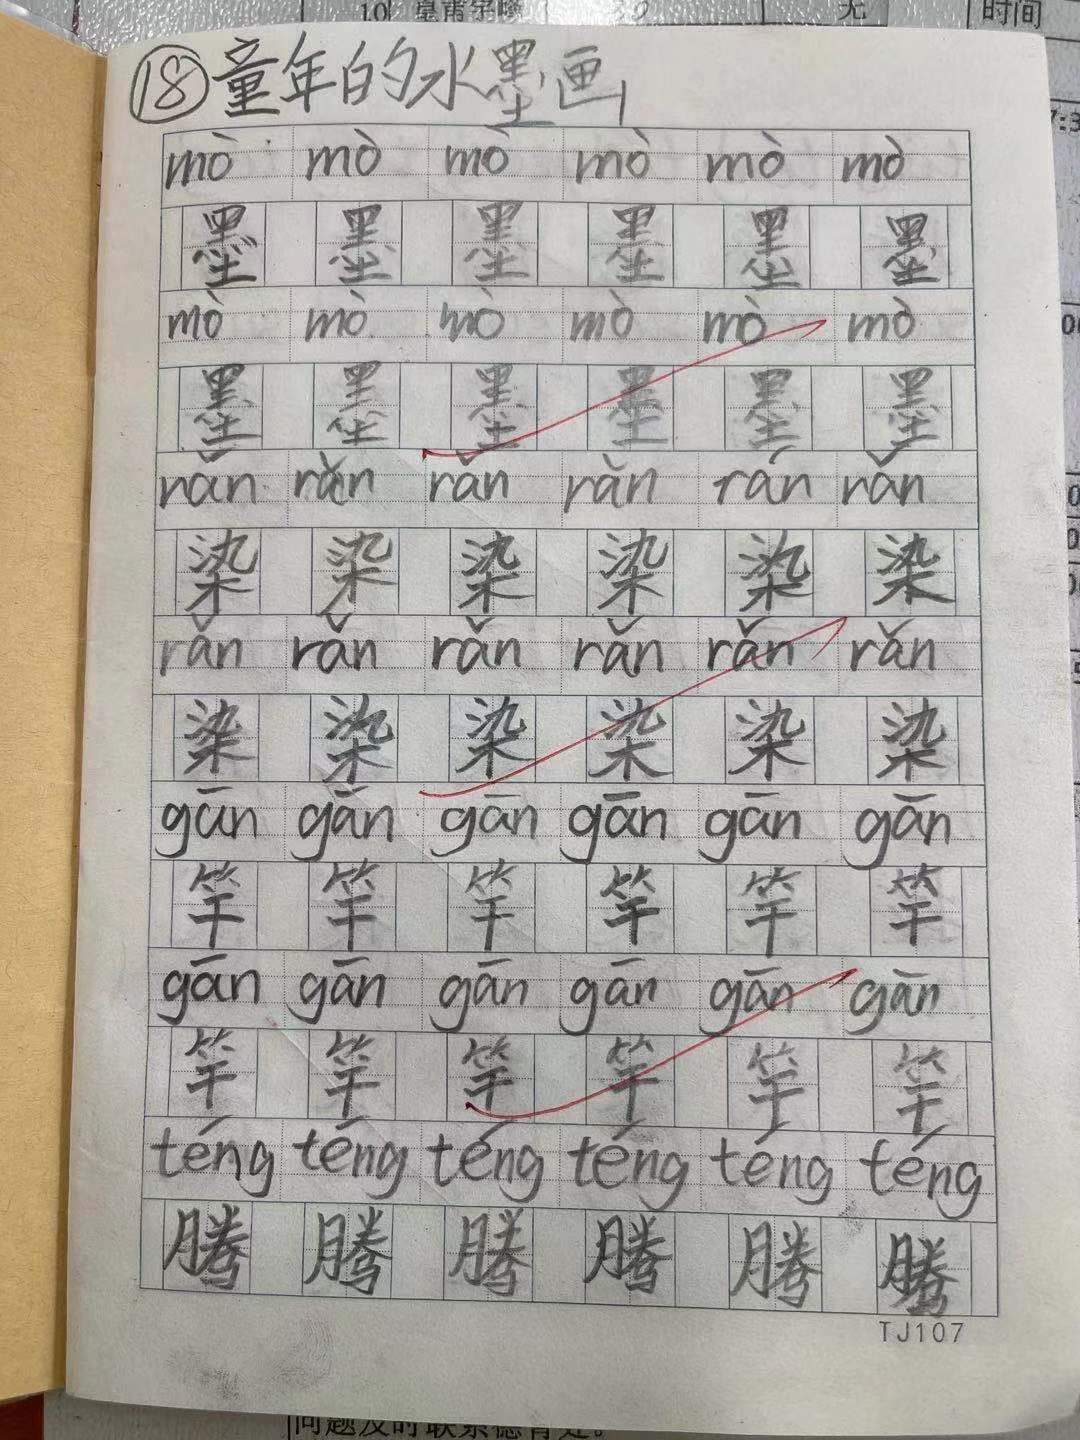 10 皇甫宇峰 39 无 时间
⑱童年的水墨画
mò mò mò mò mò mò
墨 墨 墨 墨 墨 墨
mò mò mò mò mò mò
墨 墨 墨 墨 墨 墨
rǎn rǎn rǎn rǎn rǎn rǎn
染 染 染 染 染 染
rǎn rǎn rǎn rǎn rǎn rǎn
染 染 染 染 染 染
gān gān gān gān gān gān
竿 竿 竿 竿 竿 竿
gān gān gān gān gān gān
竿 竿 竿 竿 竿 竿
téng téng téng téng téng téng
腾 腾 腾 腾 腾 腾
TJ107
问题及时联系德育处。